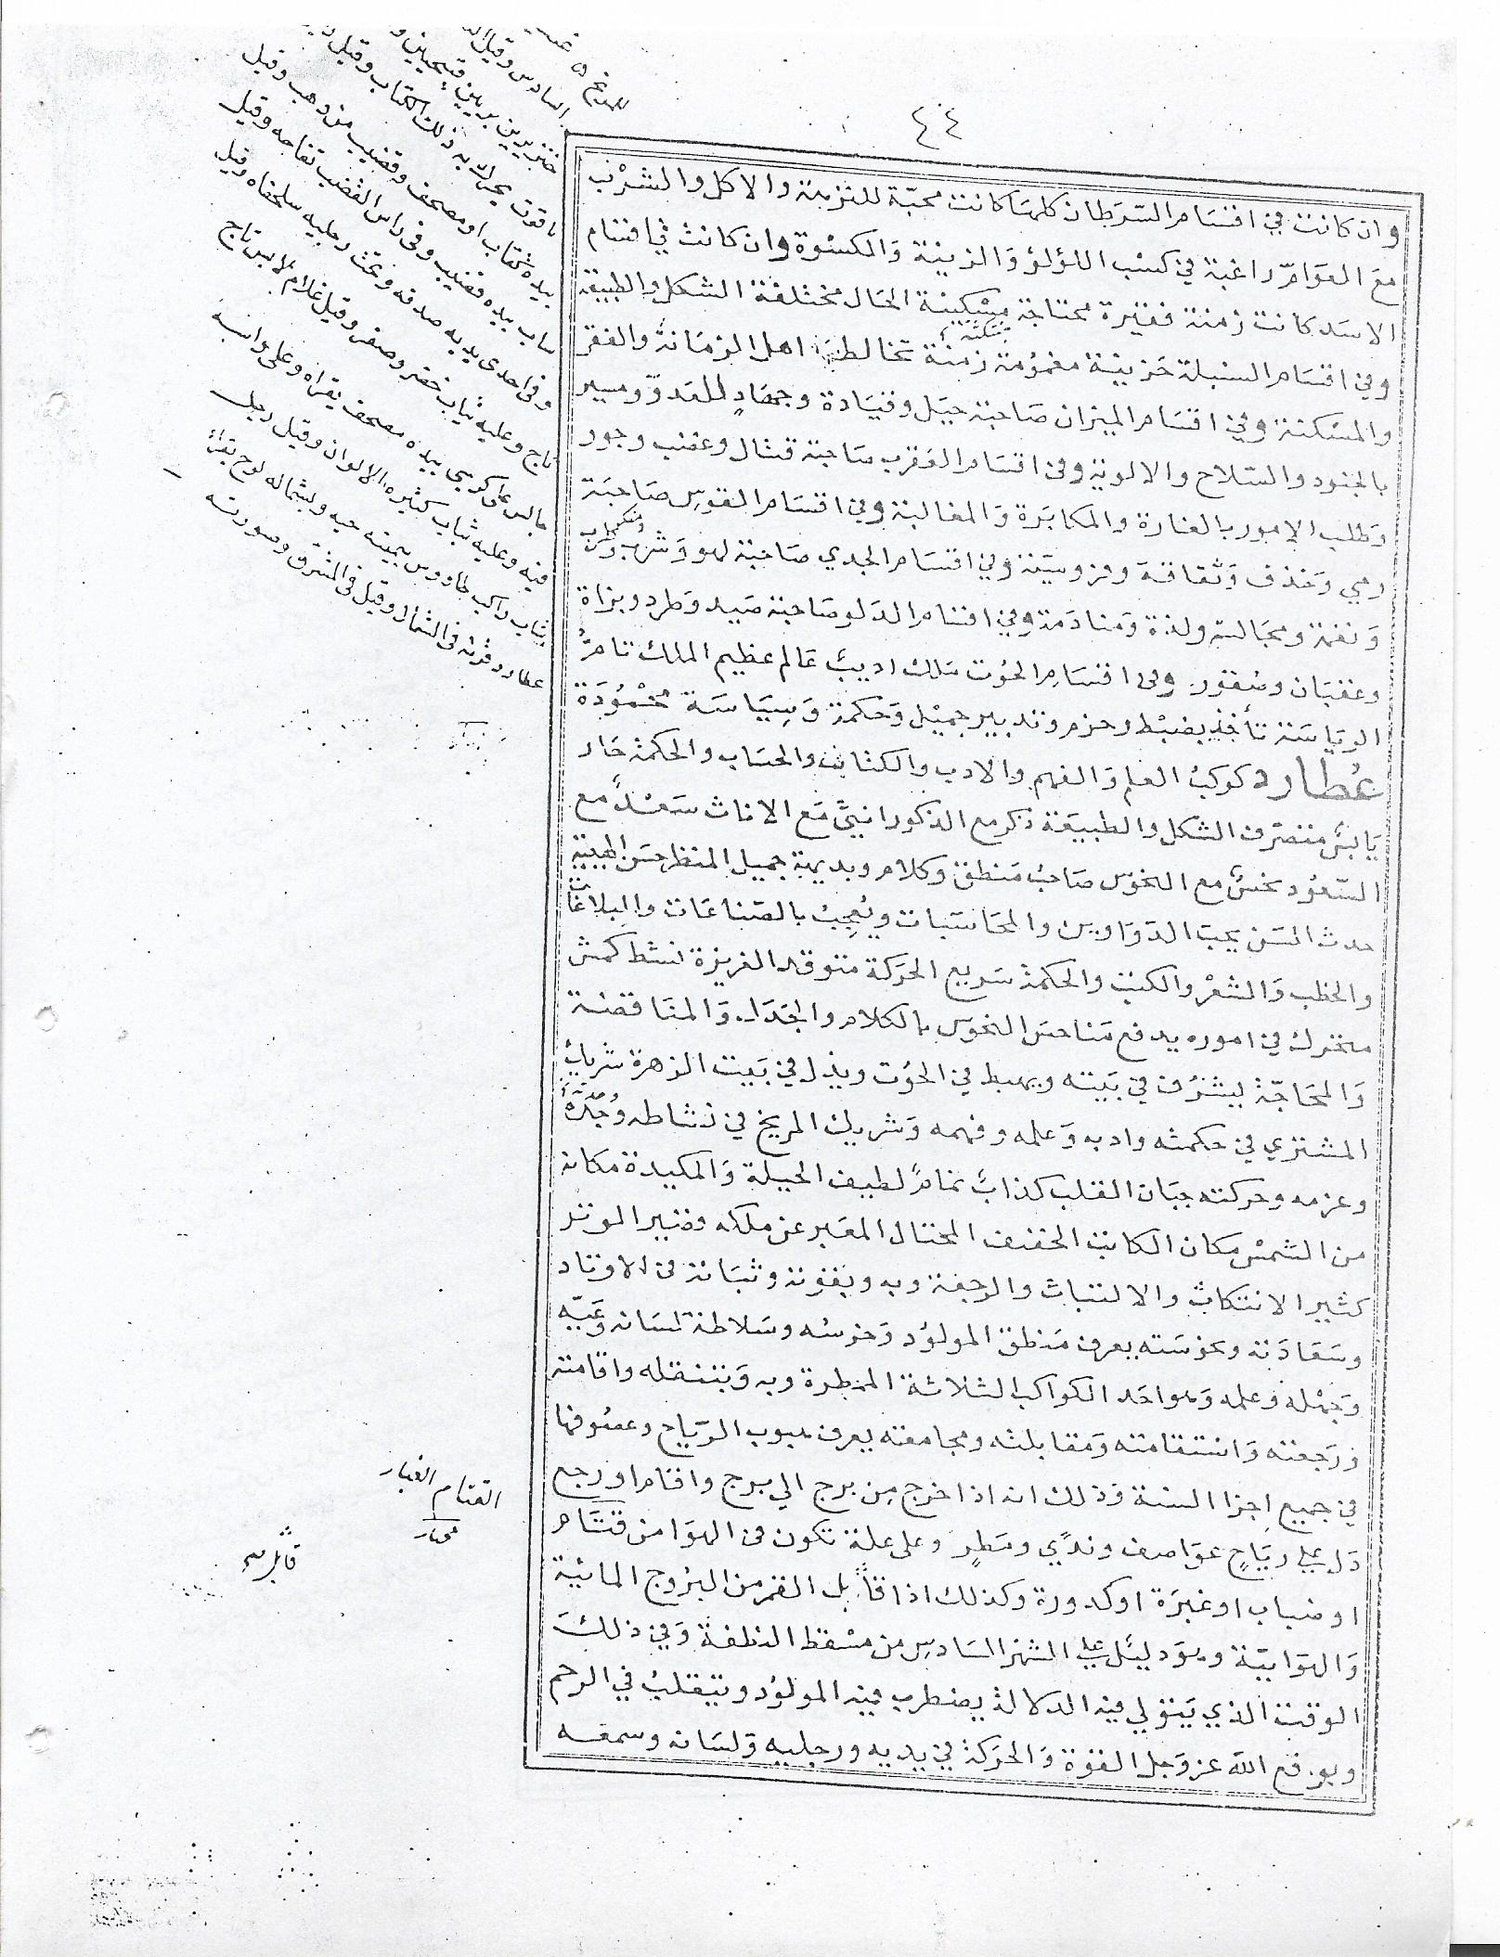 ٤٤
وان كانت في اقسَام السّرطان كلها كانت محبّة للنزهة والاكل والشرْب
مَع العوَامّ راغبة في كسْب اللؤلؤ وَالزينة وَالكسْوة وان كانت في اقسام
الاسَد كانت زمنة فقيرة محتاجة مِسْكينة الحَال مختلفة الشكل والطبيعة
وفي اقسَام السنبلة حَزينة مغمُومة زمنَة تخالط اهل الزمَانة والفقر
والمسْكنة وفي اقسَام الميزان صَاحبَة حيَل وقيَادة وجهَادٍ للعدوّ ومسير
بالجنود والسّلاح والالوية وفي اقسَام العَقرب صَاحبَة قتال وغضب وجور
وَطلب الامور بالغارة والمكابَرة وَالمغالبة وفي اقسَام القوس صَاحبَة
رمي وَحذف وَثقافة وفروسيّة وفي اقسَام الجدي صَاحبَة لهو وَشُرْب
وَنغمة ومجَالسة ولذة وَمنادَمة وفي اقسَام الدَلو صَاحبة صَيد وَطرد وبزاة
وعقبَان وصُقور وفي اقسَامِ الحُوت مَلك اديبٌ عَالم عظيم الملك تامُّ
الريَاسَة تأخذ بضبْط وحزم وتدبير جميْل وَحكمة وَسِيَاسَة محْمُودَة
عُطارد كوكبُ العلم وَالفهم والادب والكتابة والحسَاب والحكمة حَار
يَابسٌ متصرّف الشكل والطبيعَة ذكر مع الذكور انثى مَع الاناث سَعْدٌ مع
السّعُود نحسٌ مع النحوُس صَاحبُ مَنطق وكلام وبديهة جميل المنظر حسَن الهيئة
حدث السّن يحبّ الدوَاوين والمحَاسَبات ويُعجِبُ بالصّناعَات والبلاغَات
والخطب وَالشعْر والكتب والحكمة سَريع الحرَكة متوقد الغريزة نشط كمش
متحرك في اموره يدفع مَناحسَ النحوُس بالكلام والجَدَل وَالمنَاقضة
وَالمحَاجّة يشرُف في بَيته ويهبط في الحُوت ويذل في بَيت الزهرة شريكُ
المشتري في حكمته وادبه وَعلمه وفهمه وَشريك المريخ في نشاطه وَحدّة
وعزمه وحركته جبَان القلب كذابٌ نمامٌ لطيف الحيلة وَالمكيدة مكانه
من الشمسْ مكان الكاتب الخفيف المحتال المعَبر عن ملكه وضمير الموتر
كثير الانتكاث والالتباث والرجعة وبه وبقوته وثبَاته في الاوتاد
وسَعَادَته ونحوسَته يعرف مَنطق المولوُد وَخرسُه وسَلاطة لسَانه وَعَيّه
وَجهْله وَعلمه وَهو احَد الكواكب الثلاثة الممطرة وبه وَبتنقله واقامته
وَرَجعته وَاسْتقامته وَمقابلته ومجامعته يعرف هبوب الريَاح وعصُوفها
في جميع اجزا السنة وَذلك انه اذا خرج مِن برج الي برج واقام او رجع
دَل علي ريَاحٍ عوَاصف وندًي ومَطرٍ وعلى علة تكون في الهوَا من قتَام
او ضبَاب او غبرَة او كدورة وكذلك اذا قابل القمر من البرُوج المائيّة
وَالهوَايّة وهوَ دليْل علي الشهر السَادس من مسْقط النطفة وَفي ذلك
الوقت الذي يَتولي فيه الدلالة يضطرب فيه المولوُد ويتقلبُ في الرحم
ويوقع الله عز وَجل القوّة وَالحرَكة في يديه ورجليه وَلسَانه وسمعه
السادس وقيل
خنزيرين بريين قبيحين و
ياقوت يحرك به ذلك الكتاب وقيل
بيده كتاب او مصحف وقضيب من ذهب وقيل
شاب بيده قضيب وفى راس القضيب تفاحه وقيل
وفى احدى يديه صدفه وتحت رجليه سلحفاه وقيل
تاج وعليه ثياب خضر وصفر وقيل غلام لابس تاج
جالس على كرسي بيده مصحف يقراه وعلى راسه
فيه وعليه ثياب كثيره الالوان وقيل رجل
شاب راكب طاووس بيمينه حيه وبشماله لوح يقرأ
عطارد وقوته فى الشمال وقيل فى المشرق وصورته
القتام الغبار
مختار